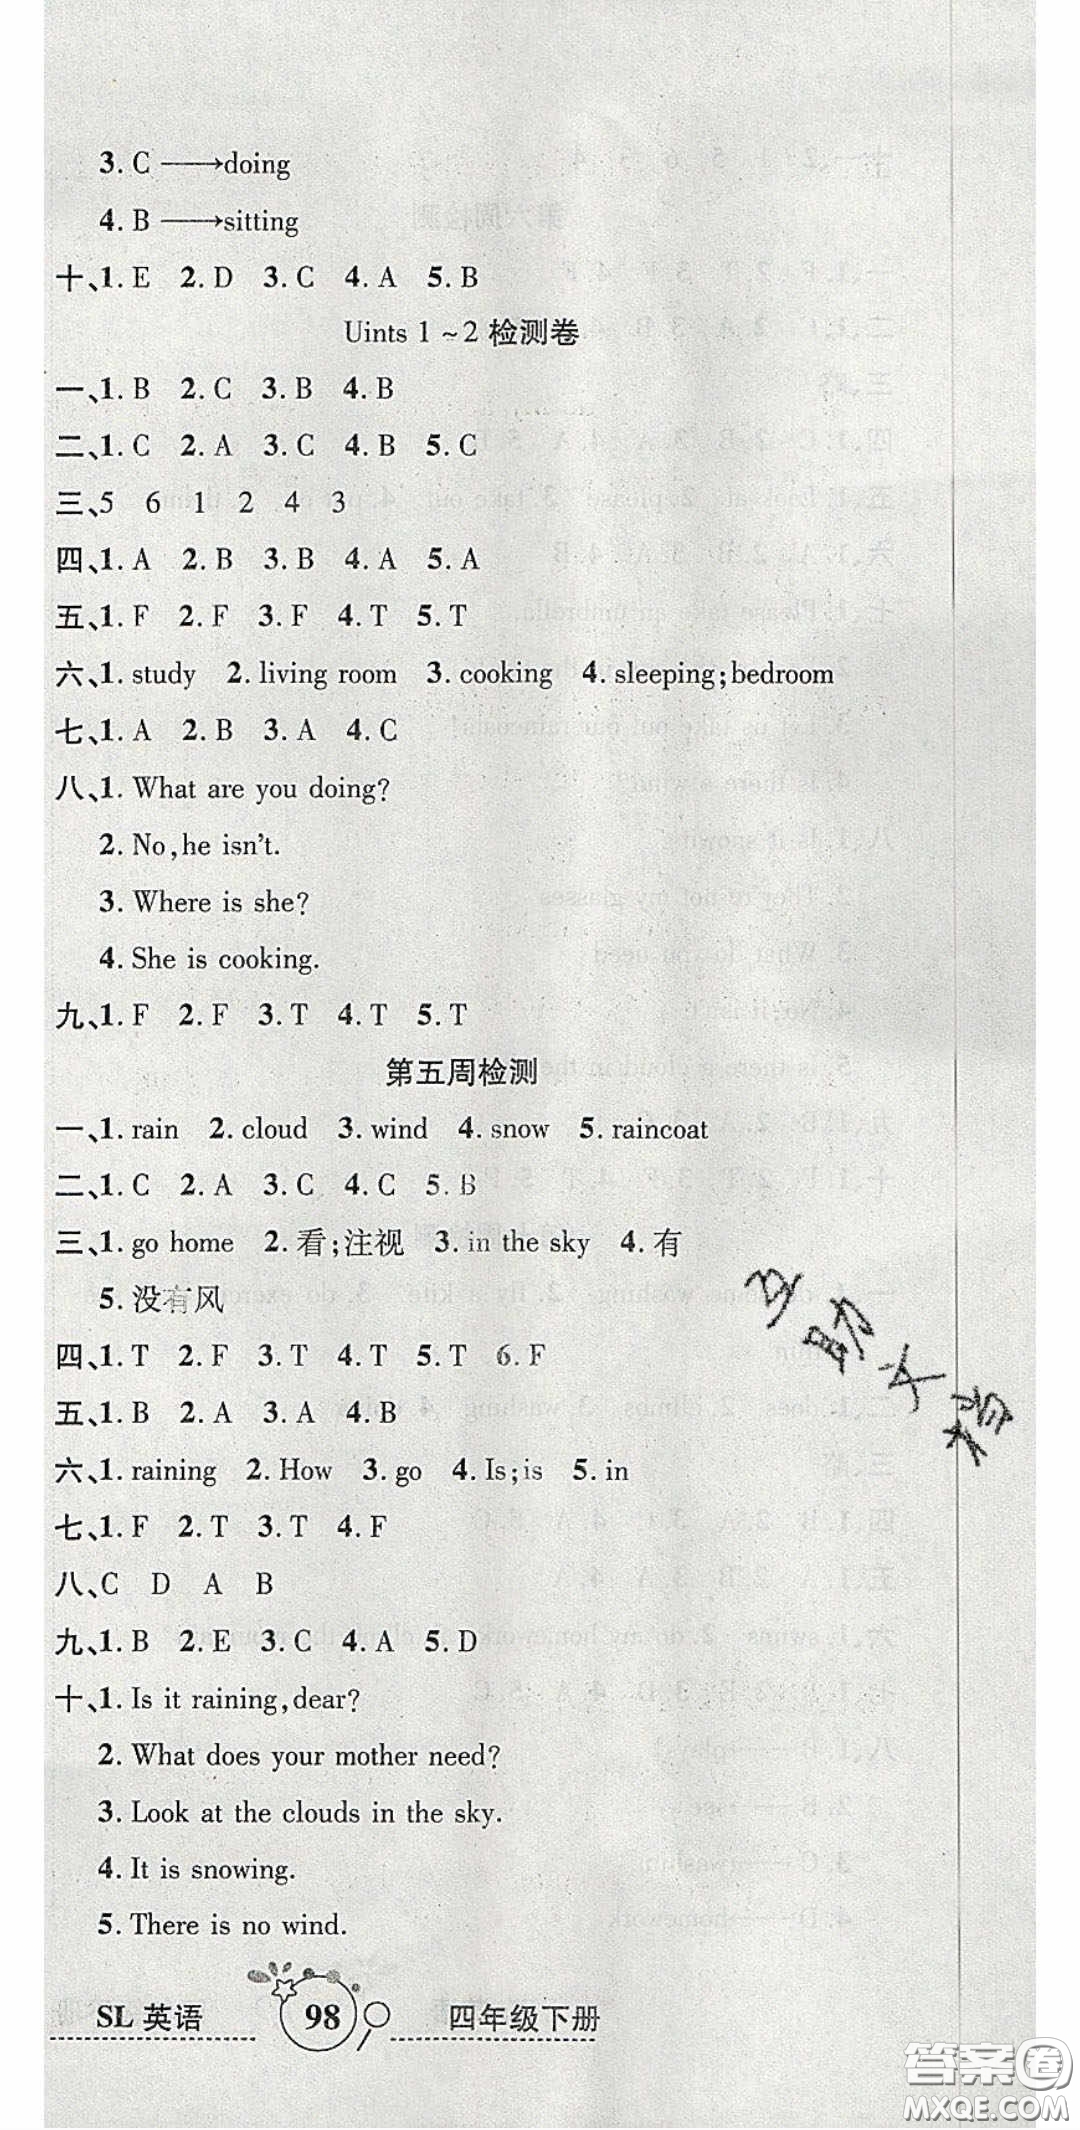 3. C ——→doing
4. B ——→sitting
十、1. E 2. D 3. C 4. A 5. B
Uints 1 ~ 2 检测卷
一、1. B 2. C 3. B 4. B
二、1. C 2. A 3. C 4. B 5. C
三、5 6 1 2 4 3
四、1. A 2. B 3. B 4. A 5. A
五、1. F 2. F 3. F 4. T 5. T
六、1. study 2. living room 3. cooking 4. sleeping;bedroom
七、1. A 2. B 3. A 4. C
八、1. What are you doing?
2. No,he isn't.
3. Where is she?
4. She is cooking.
九、1. F 2. F 3. T 4. T 5. T
第五周检测
一、1. rain 2. cloud 3. wind 4. snow 5. raincoat
二、1. C 2. A 3. C 4. C 5. B
三、1. go home 2. 看;注视 3. in the sky 4. 有
5. 没有风
四、1. T 2. F 3. T 4. T 5. T 6. F
五、1. B 2. A 3. A 4. B
六、1. raining 2. How 3. go 4. Is;is 5. in
七、1. F 2. T 3. T 4. F
八、C D A B
九、1. B 2. E 3. C 4. A 5. D
十、1. Is it raining,dear?
2. What does your mother need?
3. Look at the clouds in the sky.
4. It is snowing.
5. There is no wind.
SL 英语 98 四年级下册
答案圈
MXQE.COM